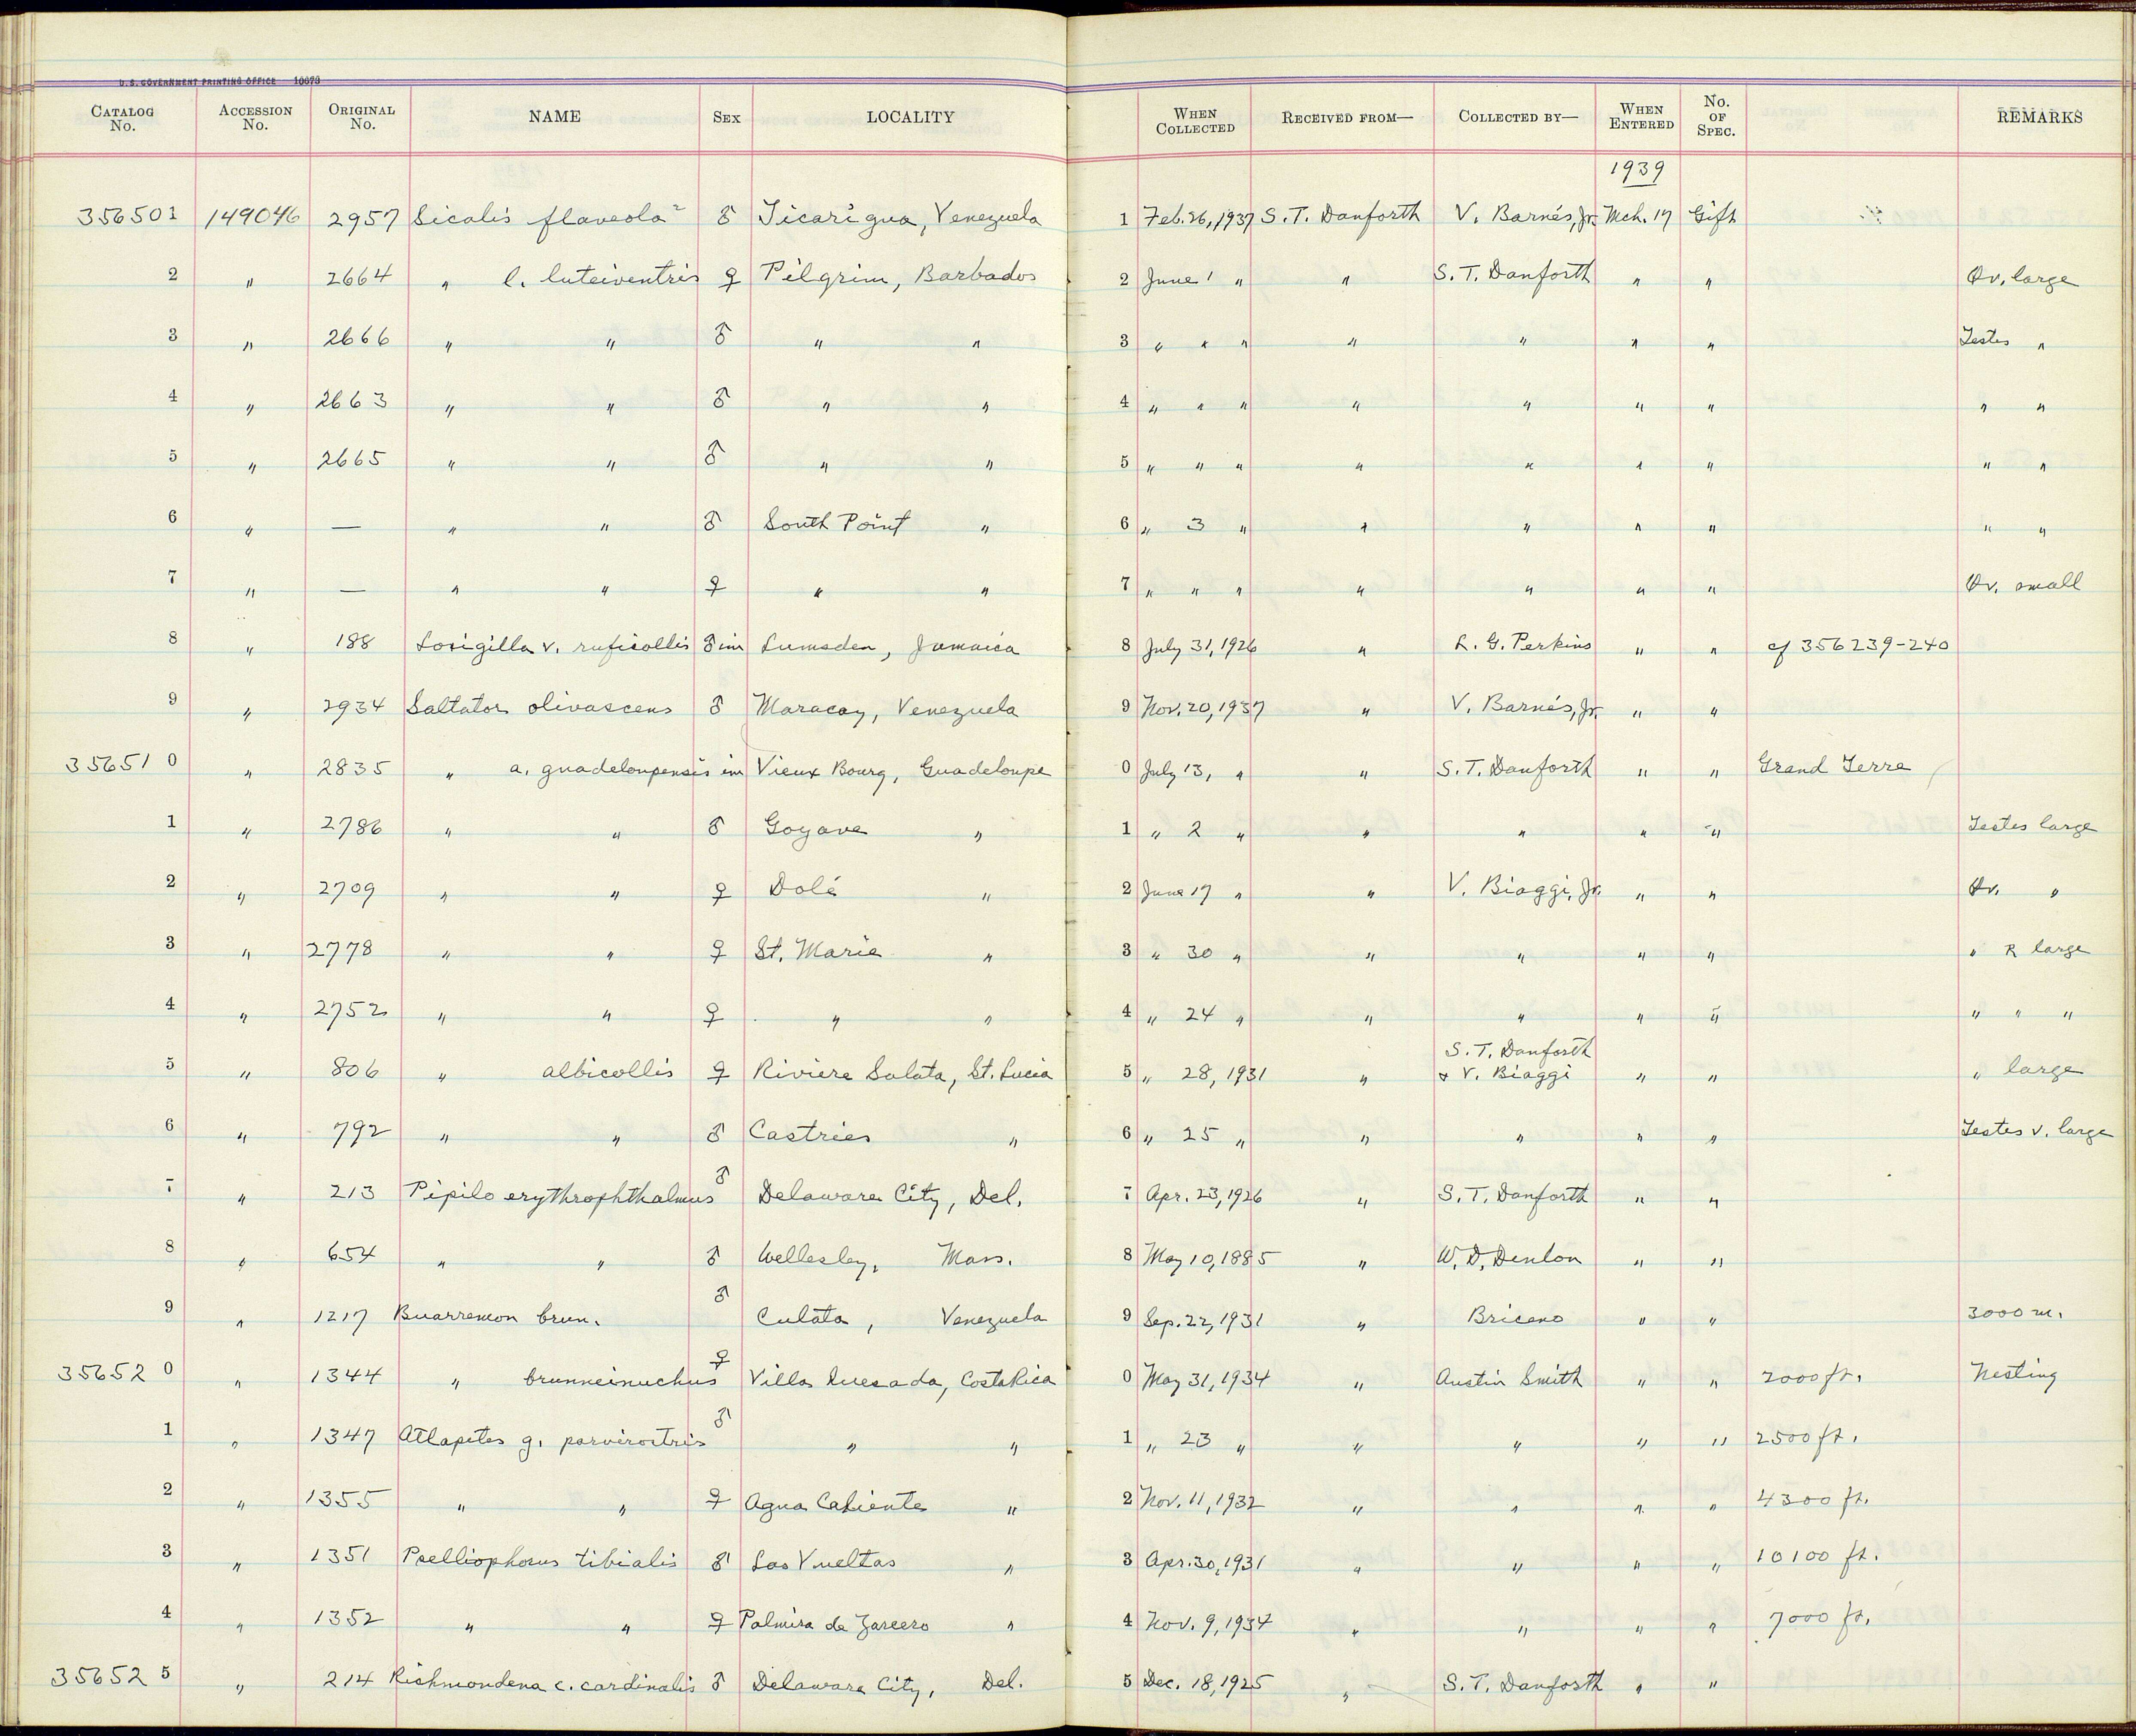 U.S. GOVERNMENT PRINTING OFFICE 10673
CATALOG No. ACCESSION No. ORIGINAL No. NAME SEX LOCALITY WHEN COLLECTED RECEIVED FROM— COLLECTED BY— WHEN ENTERED No. OF SPEC. REMARKS
1939
356501 149046 2957 Sicalis flaveola ♂ Ticarigua, Venezuela 1 Feb. 26, 1937 S. T. Danforth V. Barnés, Jr. Mch. 17 Gift
2 " 2664 " l. luteiventris ♀ Pilgrim, Barbados 2 June 1 " " S. T. Danforth " " Ov. large
3 " 2666 " " ♂ " " 3 " " " " " " " Testes "
4 " 2663 " " ♂ " " 4 " " " " " " " " "
5 " 2665 " " ♂ " " 5 " " " " " " " " "
6 " — " " ♂ South Point " 6 " 3 " " " " " " "
7 " — " " ♀ " " 7 " " " " " " " Ov. small
8 " 188 Loxigilla v. ruficollis ♂ im Lumsden, Jamaica 8 July 31, 1926 " L. G. Perkins " " cf 356239-240
9 " 2934 Saltator olivascens ♂ Maracay, Venezuela 9 Nov. 20, 1937 " V. Barnés, Jr. " "
356510 " 2835 " a. guadeloupensis im Vieux Bourg, Guadeloupe 0 July 13, " " S. T. Danforth " " Grand Terre
1 " 2786 " " ♂ Goyave " 1 " 2 " " " " " Testes large
2 " 2709 " " ♀ Dolé " 2 June 17 " " V. Biaggi, Jr. " " Ov. "
3 " 2778 " " ♀ St. Marie " 3 " 30 " " " " " " R large
4 " 2752 " " ♀ " " 4 " 24 " " " " " " " "
5 " 806 " albicollis ♀ Riviere Salata, St. Lucia 5 " 28, 1931 " S. T. Danforth & V. Biaggi " " " large
6 " 792 " " ♂ Castries " 6 " 25 " " " " " Testes v. large
7 " 213 Pipilo erythrophthalmus ♂ Delaware City, Del. 7 Apr. 23, 1926 " S. T. Danforth " "
8 " 654 " " ♂ Wellesley, Mass. 8 May 10, 1885 " W. D. Denton " "
9 " 1217 Buarremon brun. ♂ Culata, Venezuela 9 Sep. 22, 1931 " Briceno " " 3000 m.
356520 " 1344 " brunneinuchus ♀ Villa Quesada, Costa Rica 0 May 31, 1934 " Austin Smith " " 2000 ft. Nesting
1 " 1347 Atlapetes g. parvirostris ♂ " " 1 " 23 " " " " " 2500 ft.
2 " 1355 " " ♀ Agua Caliente " 2 Nov. 11, 1932 " " " " 4300 ft.
3 " 1351 Pselliophorus tibialis ♂ Las Vueltas " 3 Apr. 30, 1931 " " " " 10100 ft.
4 " 1352 " " ♀ Palmira de Zarcero " 4 Nov. 9, 1934 " " " " 7000 ft.
356525 " 214 Richmondena c. cardinalis ♂ Delaware City, Del. 5 Dec. 18, 1925 " S. T. Danforth " "